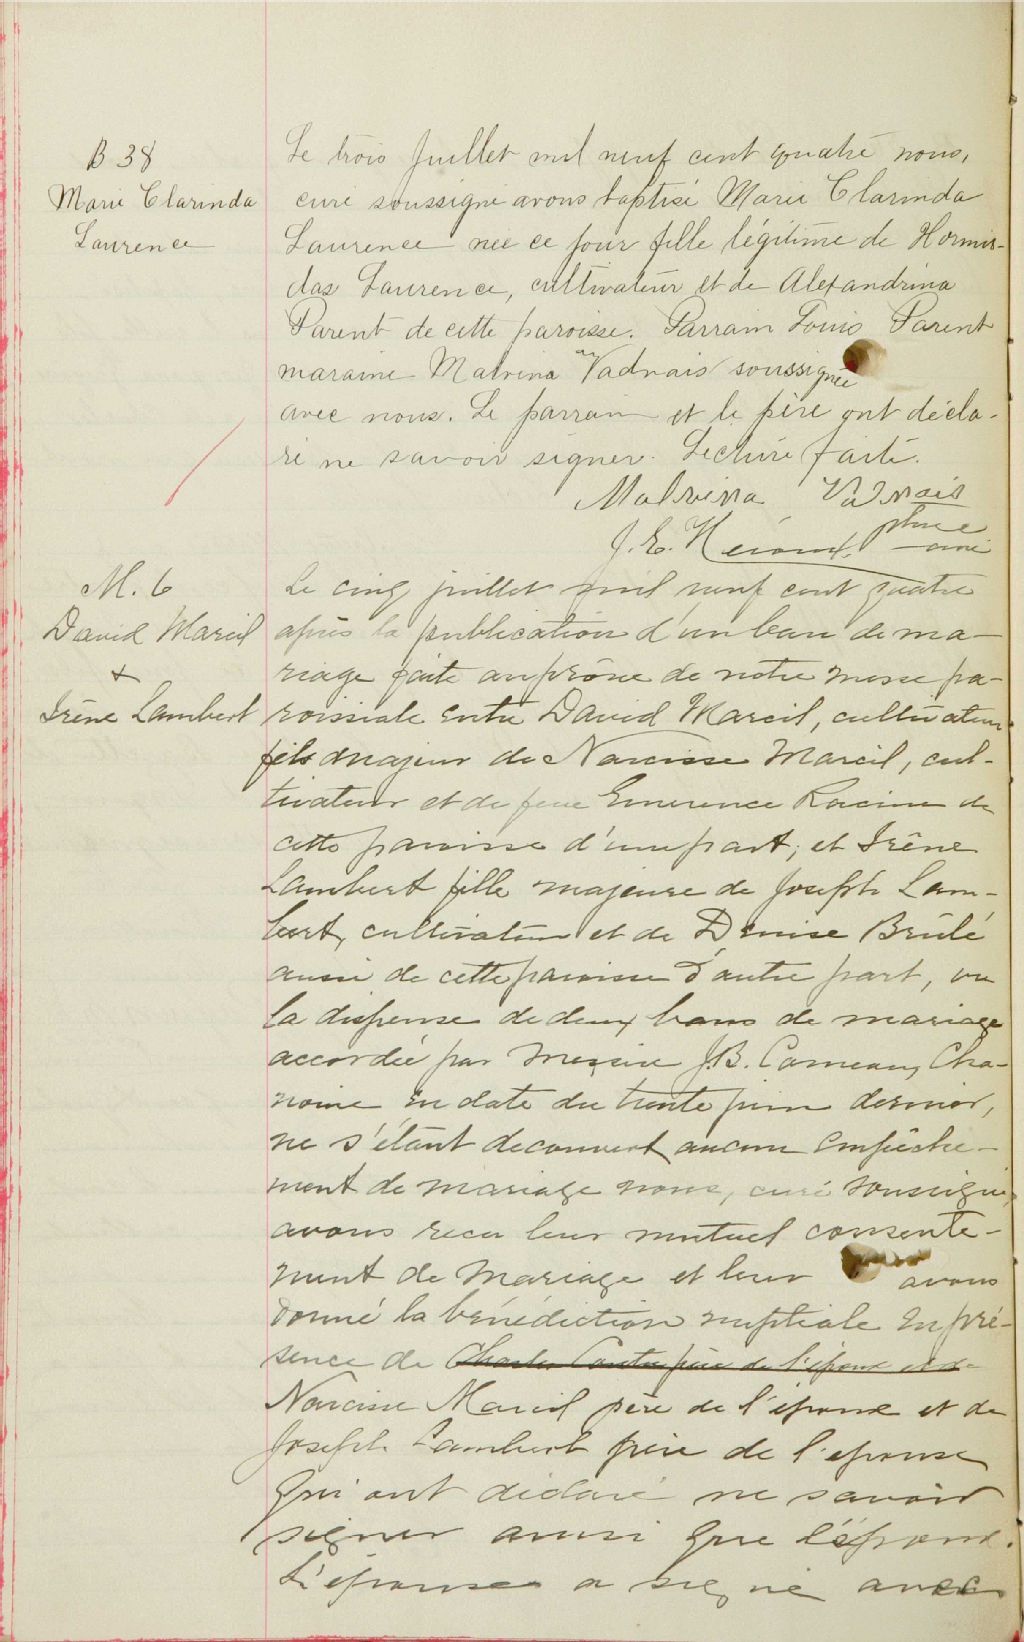 B 38
Marie Clarinda
Laurence
Le trois Juillet mil neuf cent quatre nous,
curé soussigné avons baptisé Marie Clarinda
Laurence née ce jour fille légitime de Hormis-
das Laurence, cultivateur et de Alexandrina
Parent de cette paroisse. Parrain Louis Parent
maraine Malvina Vadnais soussignée
avec nous. Le parrain et le père ont décla-
ré ne savoir signer. Lecture faite.
Malvina Vadnais
J. E.
M. 6
David Marcil
+
Irène Lambert
Le cinq juillet mil neuf cent quatre
après la publication d'un ban de ma-
riage faite au prône de notre messe pa-
roissiale entre David Marcil, cultivateur
fils majeur de Narcisse Marcil, cul-
tivateur et de feue Emerence Racine de
cette paroisse d'une part; et Irène
Lambert fille majeure de Joseph Lam-
bert, cultivateur et de Denise Brûlé
aussi de cette paroisse d'autre part, vu
la dispense de deux bans de mariage
accordée par Messire J.B. Comeau, Cha-
noine en date du trente juin dernier,
ne s'étant decouvert aucun empêche-
ment de mariage nous, curé soussigné,
avons recu leur mutuel consente-
ment de mariage et leur avons
donné la bénédiction nuptiale en pré-
sence de Charles père de l'époux et de
Narcisse Marcil père de l'époux et de
Joseph Lambert père de l'épouse
qui ont déclaré ne savoir
signer ainsi que l'époux.
L'épouse a signé avec